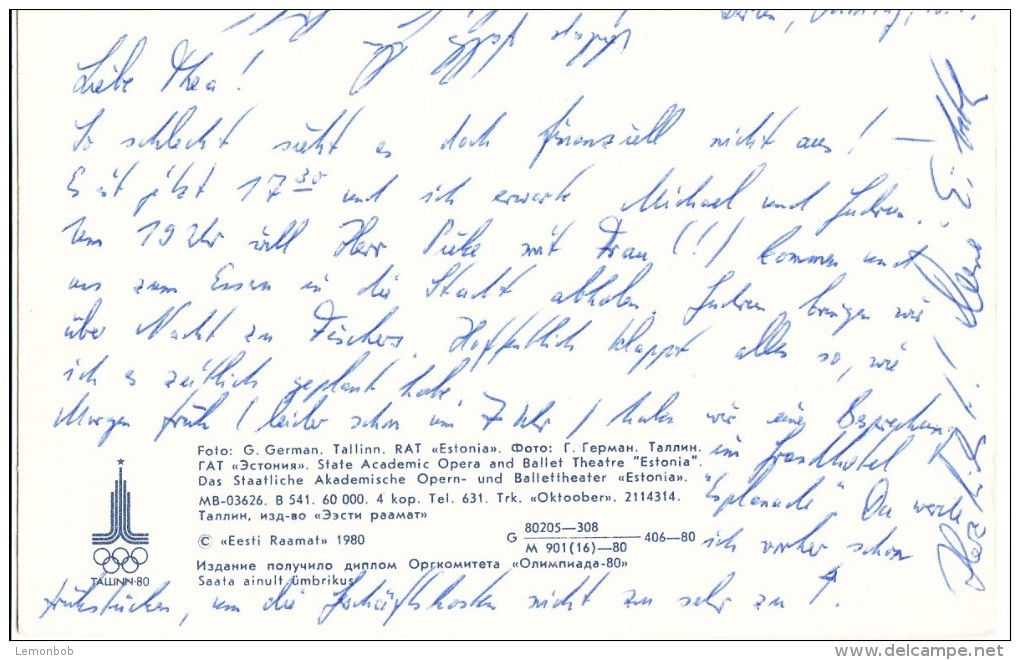 Liebe Thea!
So schlecht sieht es doch finanziell nicht aus! —
Es ist jetzt 17 30 und ich erwarte Michael und
Um 19 Uhr will Herr mit Frau (!) kommen und
uns zum Essen in die Stadt abholen. bringen wir
über Nacht zu Fischers. Hoffentlich klappt alles so, wie
ich es zeitlich geplant habe.
Morgen früh (leider schon um 7 Uhr) haben wir eine Besprechung
im Grandhotel
"Esplanade". Da werde
ich vorher schon
frühstücken, um die Geschäftskosten nicht zu sehr zu
Foto: G. German. Tallinn. RAT «Estonia». Фото: Г. Герман. Таллин.
ГАТ «Эстония». State Academic Opera and Ballet Theatre "Estonia".
Das Staatliche Akademische Opern- und Ballettheater «Estonia».
MB-03626. B 541. 60 000. 4 kop. Tel. 631. Trk. «Oktoober». 2114314.
Таллин, изд-во «Ээсти раамат»
© «Eesti Raamat» 1980
G 80205—308
M 901(16)—80
406—80
Издание получило диплом Оргкомитета «Олимпиада-80»
Saata ainult ümbrikus
TALLINN·80
Lemonbob
delcampe.net